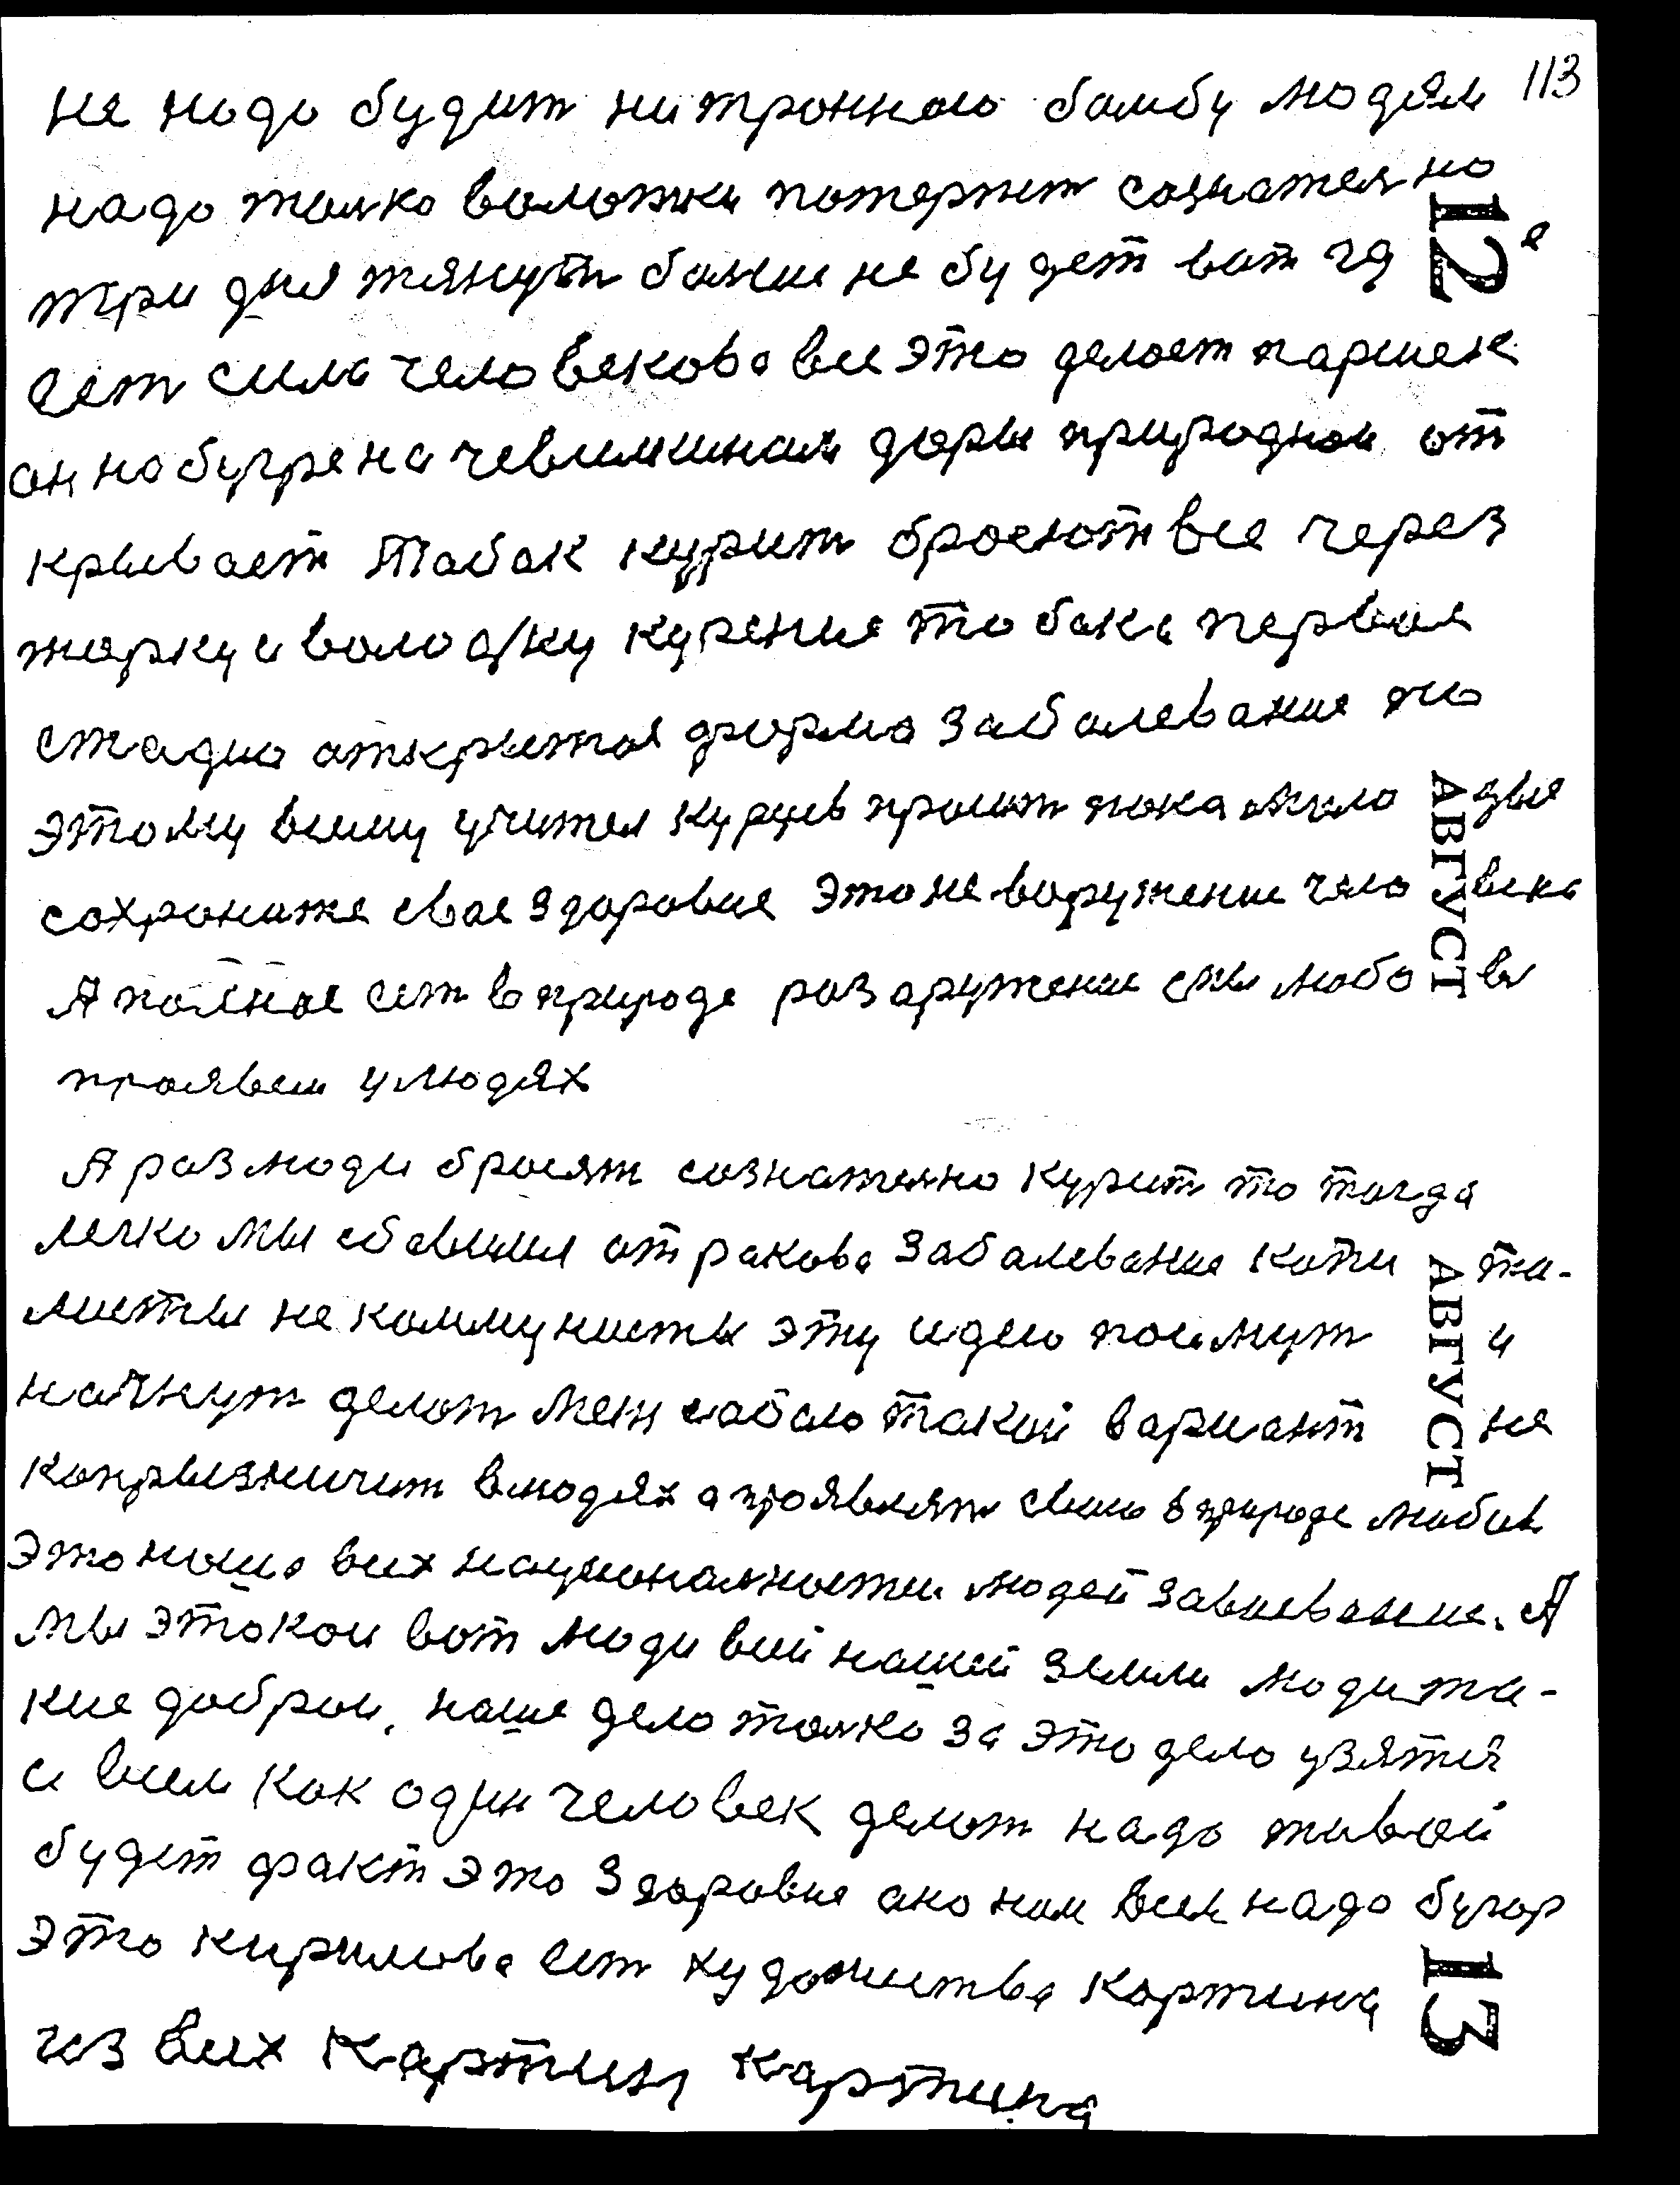 113
не надо будит нитронною бомбу людям
надо толко волоткы потерпет сознателно
12
три дня тянути болше не будет вот где
ест сила человекова все это делает паршек
он на бугре на чевилкиным дары природнои от
крывает Табак курит бросют все через
терку и володку курение табака первая
стадио аткрытоя форма заболевание по
этому всему учител курцев просит пока молодые
АВГУСТ
сохроните свае здоровие это не воружение человека
А полное ест в природе розаружение мы любовы
проявем у людях
А роз люди бросят сознателно курит то тогда
легко мы избавимся от ракова заболевание капита-
АВГУСТ
листы не коммунисты эту идею поимут и
начнут делот меж сабою такой вариант не
копрызничит в людях а проявлят свою в природе любов
это наша всих националности людей завоевание. А
мы этокои вот люди всий нашей земли люди та-
кие доброи, наше дело толко за это дело узятис
и всем как один человек делот надо живой
будет факт это здоровие ано нам всем надо бугор
это кирилова ест художиства картина
13
из всих картин картина